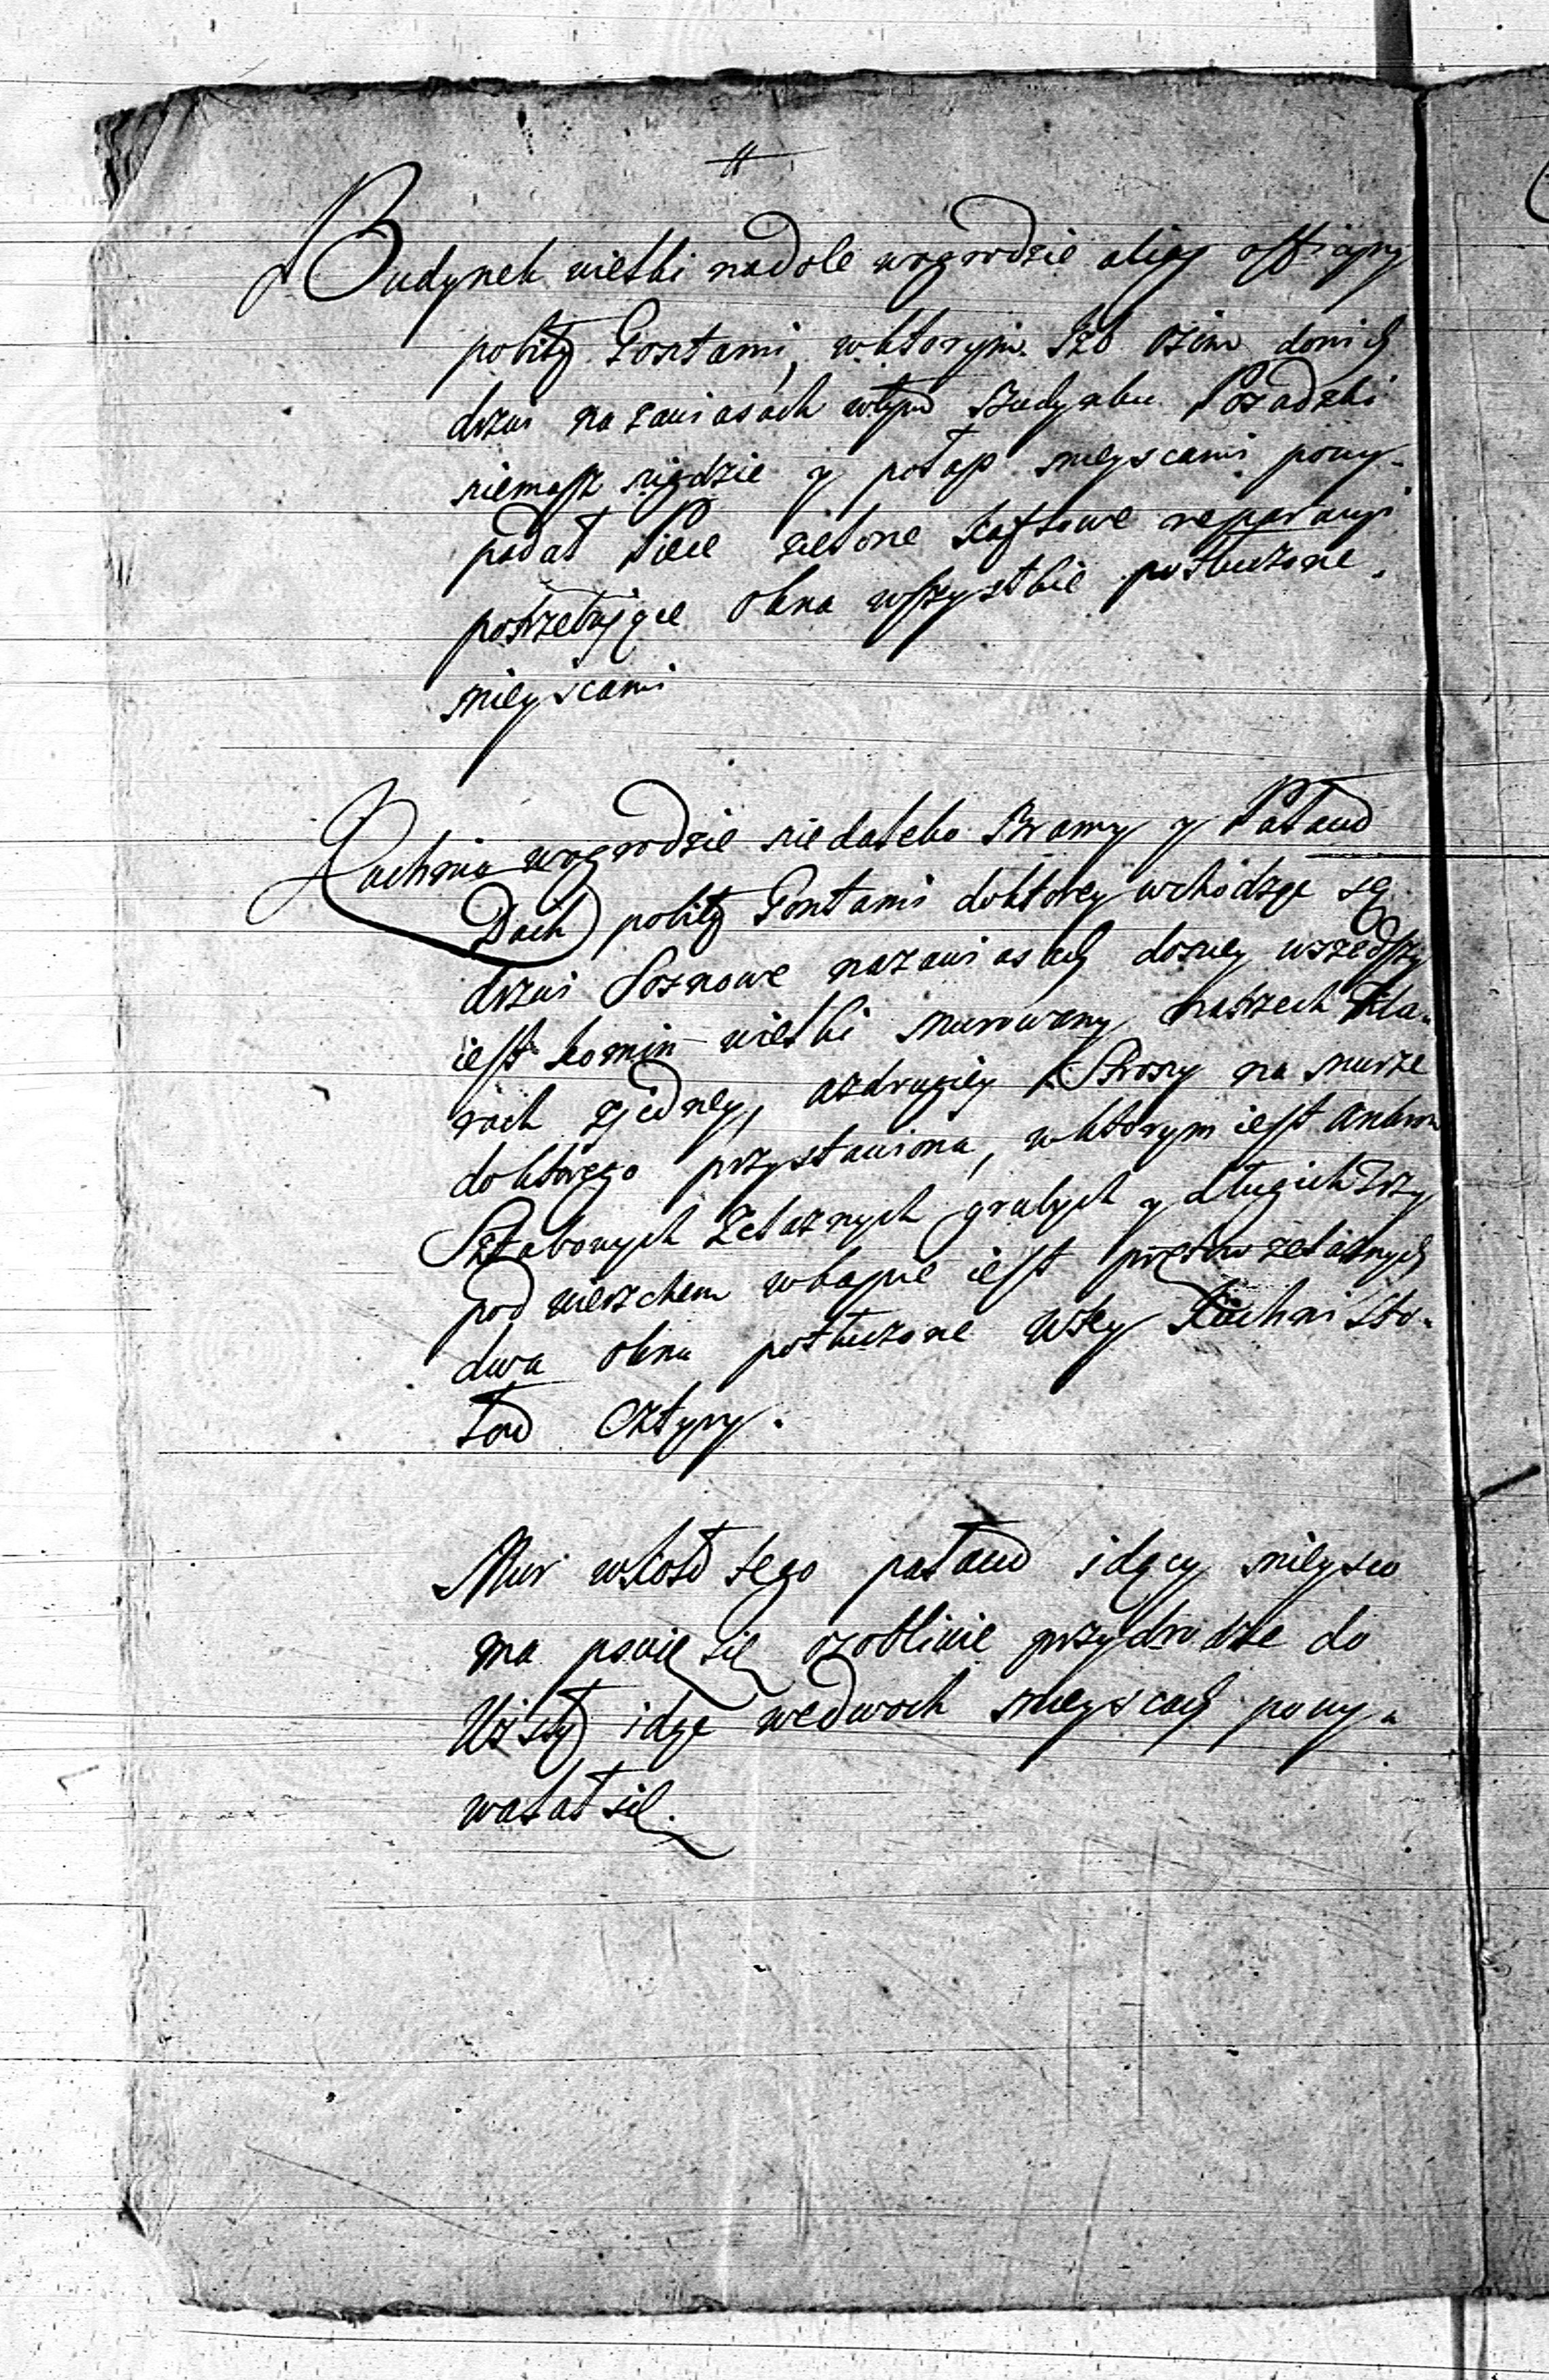 Budynek wielki nadole wogrodzie alias officyny
pobity Gontami, wktorym Izb ośm donich
drzwi nazawiasach wtym Budynku Posadzki
niemasz nigdzie y pułap mieyscami powy-
padał Piece zielone kaflowe reparacyi
potrzebuiące okna wszystkie potłuczone
mieyscami
Kuchnia wogrodzie niedaleko Bramy y Pałacu
Dach pobity Gontami doktorey wchodząc są
drzwi Sosnowe nazawiasach doniey wszedszy
iest komin wielki murowany natrzech Fila-
rach zjedney, azdrugiey Strony na murze
doktorego przystawiona, wktorym iest
Sztabowych żelaznych grubych y długich trzy
pod wierzchem wkapie iest prętów żelaznych
dwa okna potłuczone wtey kuchni sto-
łow cztyry.
Mur wkoło tego pałacu idący mieysca
ma psuie się osobliwie przydrodze do
idąc wedwoch mieyscach powy-
walał się.